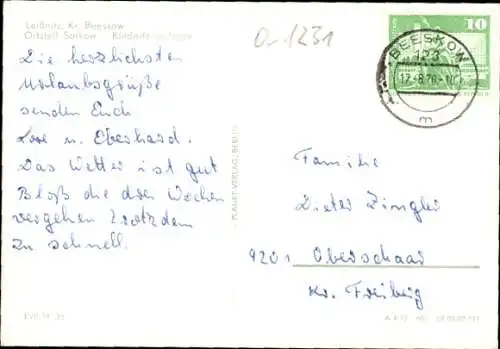 Leißnitz, Kr. Beeskow
Ortsteil Sarkow Kinderferienlager
O-1231
10
BEESKOW
123
17.-8.78-10
m
Die herzlichsten
Urlaubsgrüße
senden Euch
Lore u. Eberhard.
Das Wetter ist gut
Bloß die drei Wochen
vergehen trotzdem
zu schnell.
PLANET-VERLAG, BERLIN
Familie
Dieter Zingler
9201 Oberschaar
Kr. Freiberg